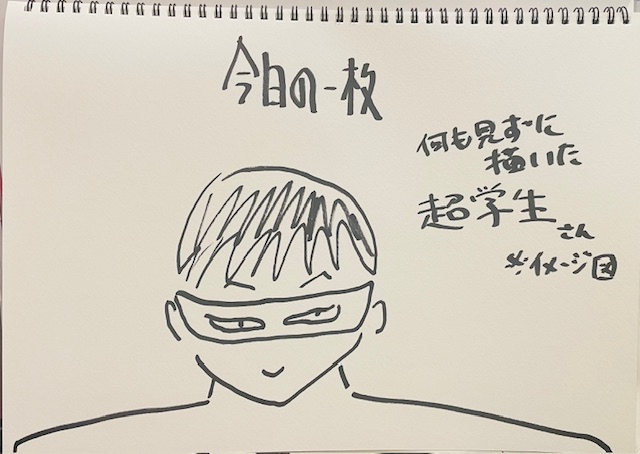 今日の一枚
何も見ずーに
描いた
超学生
さん
※イメージ図